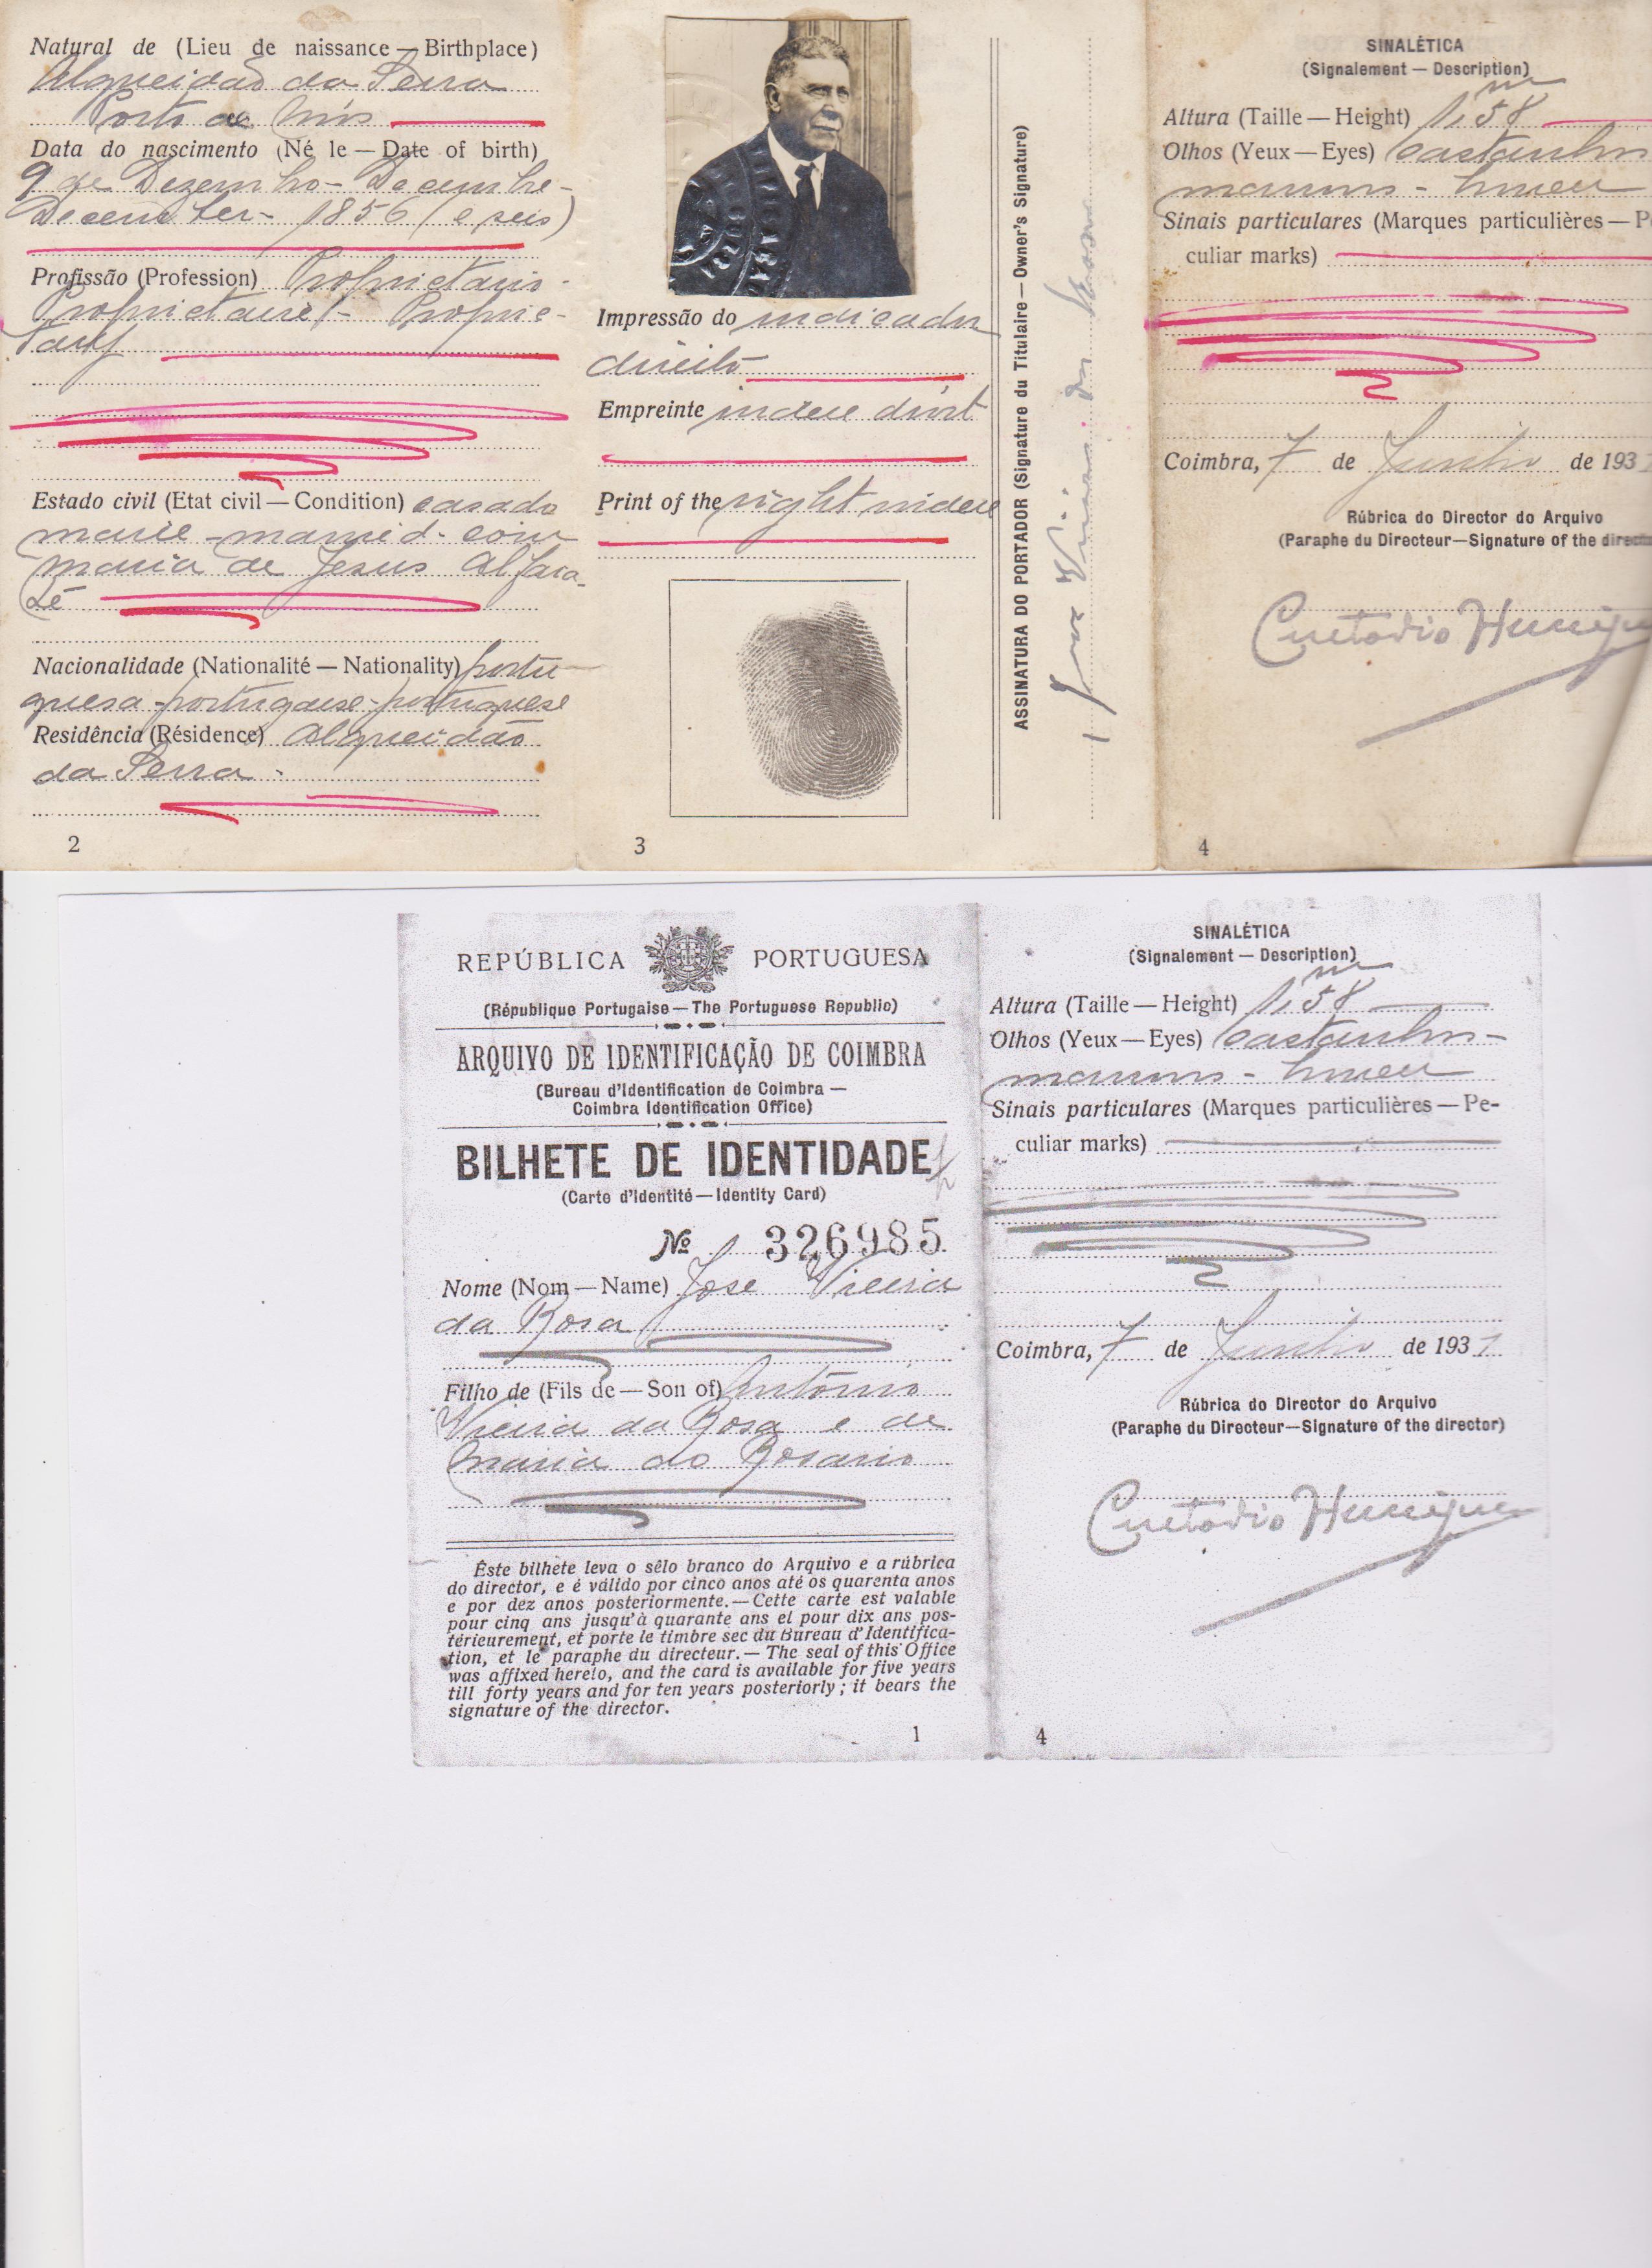 Natural de (Lieu de naissance — Birthplace)
Alqueidão da Serra
Porto de Mós
Data do nascimento (Né le — Date of birth)
9 de Dezembro - Decembre -
December - 1856 (e seis)
Profissão (Profession) Proprietario -
Proprietaire - Proprie-
tary
Estado civil (Etat civil — Condition) casado
marié - married - com
Maria de Jesus Alfara-
Nacionalidade (Nationalité — Nationality) portu-
guesa - portugaise - portuguese
Residência (Résidence) Alqueidão
da Serra -
2
Impressão do indicador
direito
Empreinte index droit
Print of the right index
3
ASSINATURA DO PORTADOR (Signature du Titulaire — Owner's Signature)
Jose Vieira da Rosa
SINALÉTICA
(Signalement — Description)
Altura (Taille — Height) 1,58 m
Olhos (Yeux — Eyes) castanhos
marrons - brown
Sinais particulares (Marques particulières — P
culiar marks)
Coimbra, 7 de Junho de 193
Rúbrica do Director do Arquivo
(Paraphe du Directeur—Signature of the direct
Custodio
4
REPÚBLICA PORTUGUESA
(République Portugaise — The Portuguese Republic)
ARQUIVO DE IDENTIFICAÇÃO DE COIMBRA
(Bureau d'Identification de Coimbra —
Coimbra Identification Office)
BILHETE DE IDENTIDADE
(Carte d'Identité — Identity Card)
Nº 326985
Nome (Nom — Name) Jose Vieira
da Rosa
Filho de (Fils de — Son of) António
Vieira da Rosa e de
Maria do Rosario
Êste bilhete leva o sêlo branco do Arquivo e a rúbrica
do director, e é válido por cinco anos até os quarenta anos
e por dez anos posteriormente. — Cette carte est valable
pour cinq ans jusqu'à quarante ans et pour dix ans pos-
térieurement, et porte le timbre sec du Bureau d'Identifica-
tion, et le paraphe du directeur. — The seal of this Office
was affixed hereto, and the card is available for five years
till forty years and for ten years posteriorly; it bears the
signature of the director.
1
SINALÉTICA
(Signalement — Description)
Altura (Taille — Height) 1,58 m
Olhos (Yeux — Eyes) castanhos -
marrons - brown
Sinais particulares (Marques particulières — Pe-
culiar marks)
Coimbra, 7 de Junho de 193
Rúbrica do Director do Arquivo
(Paraphe du Directeur—Signature of the director)
Custodio
4